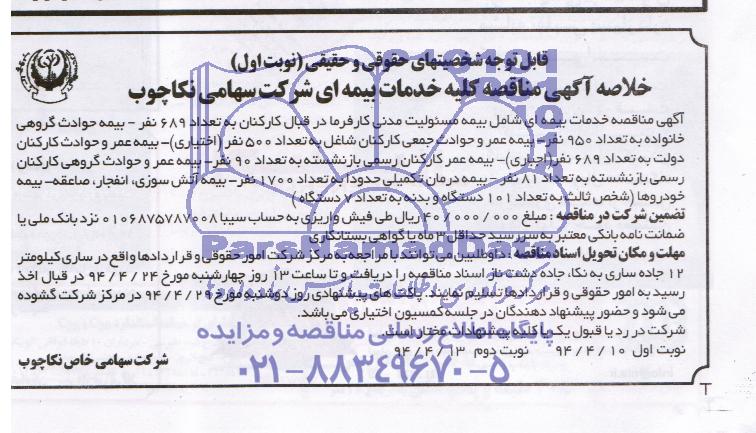 قابل توجه شخصیتهای حقوقی و حقیقی (نوبت اول)
خلاصه آگهی مناقصه کلیه خدمات بیمه ای شرکت سهامی نکاچوب
آگهی مناقصه خدمات بیمه ای شامل بیمه مسئولیت مدنی کارفرما در قبال کارکنان به تعداد ۶۸۹ نفر - بیمه حوادث گروهی
خانواده به تعداد ۹۵۰ نفر - بیمه عمر و حوادث جمعی کارکنان شاغل به تعداد ۵۰۰ نفر (اختیاری)- بیمه عمر و حوادث کارکنان
دولت به تعداد ۶۸۹ نفر (اجباری)- بیمه عمر کارکنان رسمی بازنشسته به تعداد ۹۰ نفر- بیمه عمر و حوادث گروهی کارکنان
رسمی بازنشسته به تعداد ۸۱ نفر - بیمه درمان تکمیلی حدودا به تعداد ۱۷۰۰ نفر- بیمه آتش سوزی، انفجار، صاعقه- بیمه
خودروها (شخص ثالث به تعداد ۱۰۱ دستگاه و بدنه به تعداد ۷ دستگاه)
تضمین شرکت در مناقصه : مبلغ ۴۰/۰۰۰/۰۰۰ ریال طی فیش واریزی به حساب سیبا ۰۱۰۶۸۷۵۷۸۷۰۰۸ نزد بانک ملی یا
ضمانت نامه بانکی معتبر به سررسید حداقل ۳ ماه یا گواهی بستانکاری
مهلت و مکان تحویل اسناد مناقصه : داوطلبین می توانند با مراجعه به مرکز شرکت امور حقوقی و قراردادها واقع در ساری کیلومتر
۱۲ جاده ساری به نکا، جاده دشت ناز اسناد مناقصه را دریافت و تا ساعت ۱۳ روز چهارشنبه مورخ ۹۴/۴/۲۴ در قبال اخذ
رسید به امور حقوقی و قراردادها تسلیم نمایند. پاکت های پیشنهادی روز دوشنبه مورخ ۹۴/۴/۲۹ در مرکز شرکت گشوده
می شود و حضور پیشنهاد دهندگان در جلسه کمسیون اختیاری می باشد.
شرکت در رد یا قبول یک یا کلیه پیشنهادات مختار است.
نوبت اول ۹۴/۴/۱۰ نوبت دوم ۹۴/۴/۱۳
شرکت سهامی خاص نکاچوب
ParsNamadData
پایگاه اطلاع رسانی مناقصه و مزایده
۰۲۱-۸۸۳۴۹۶۷۰-۵